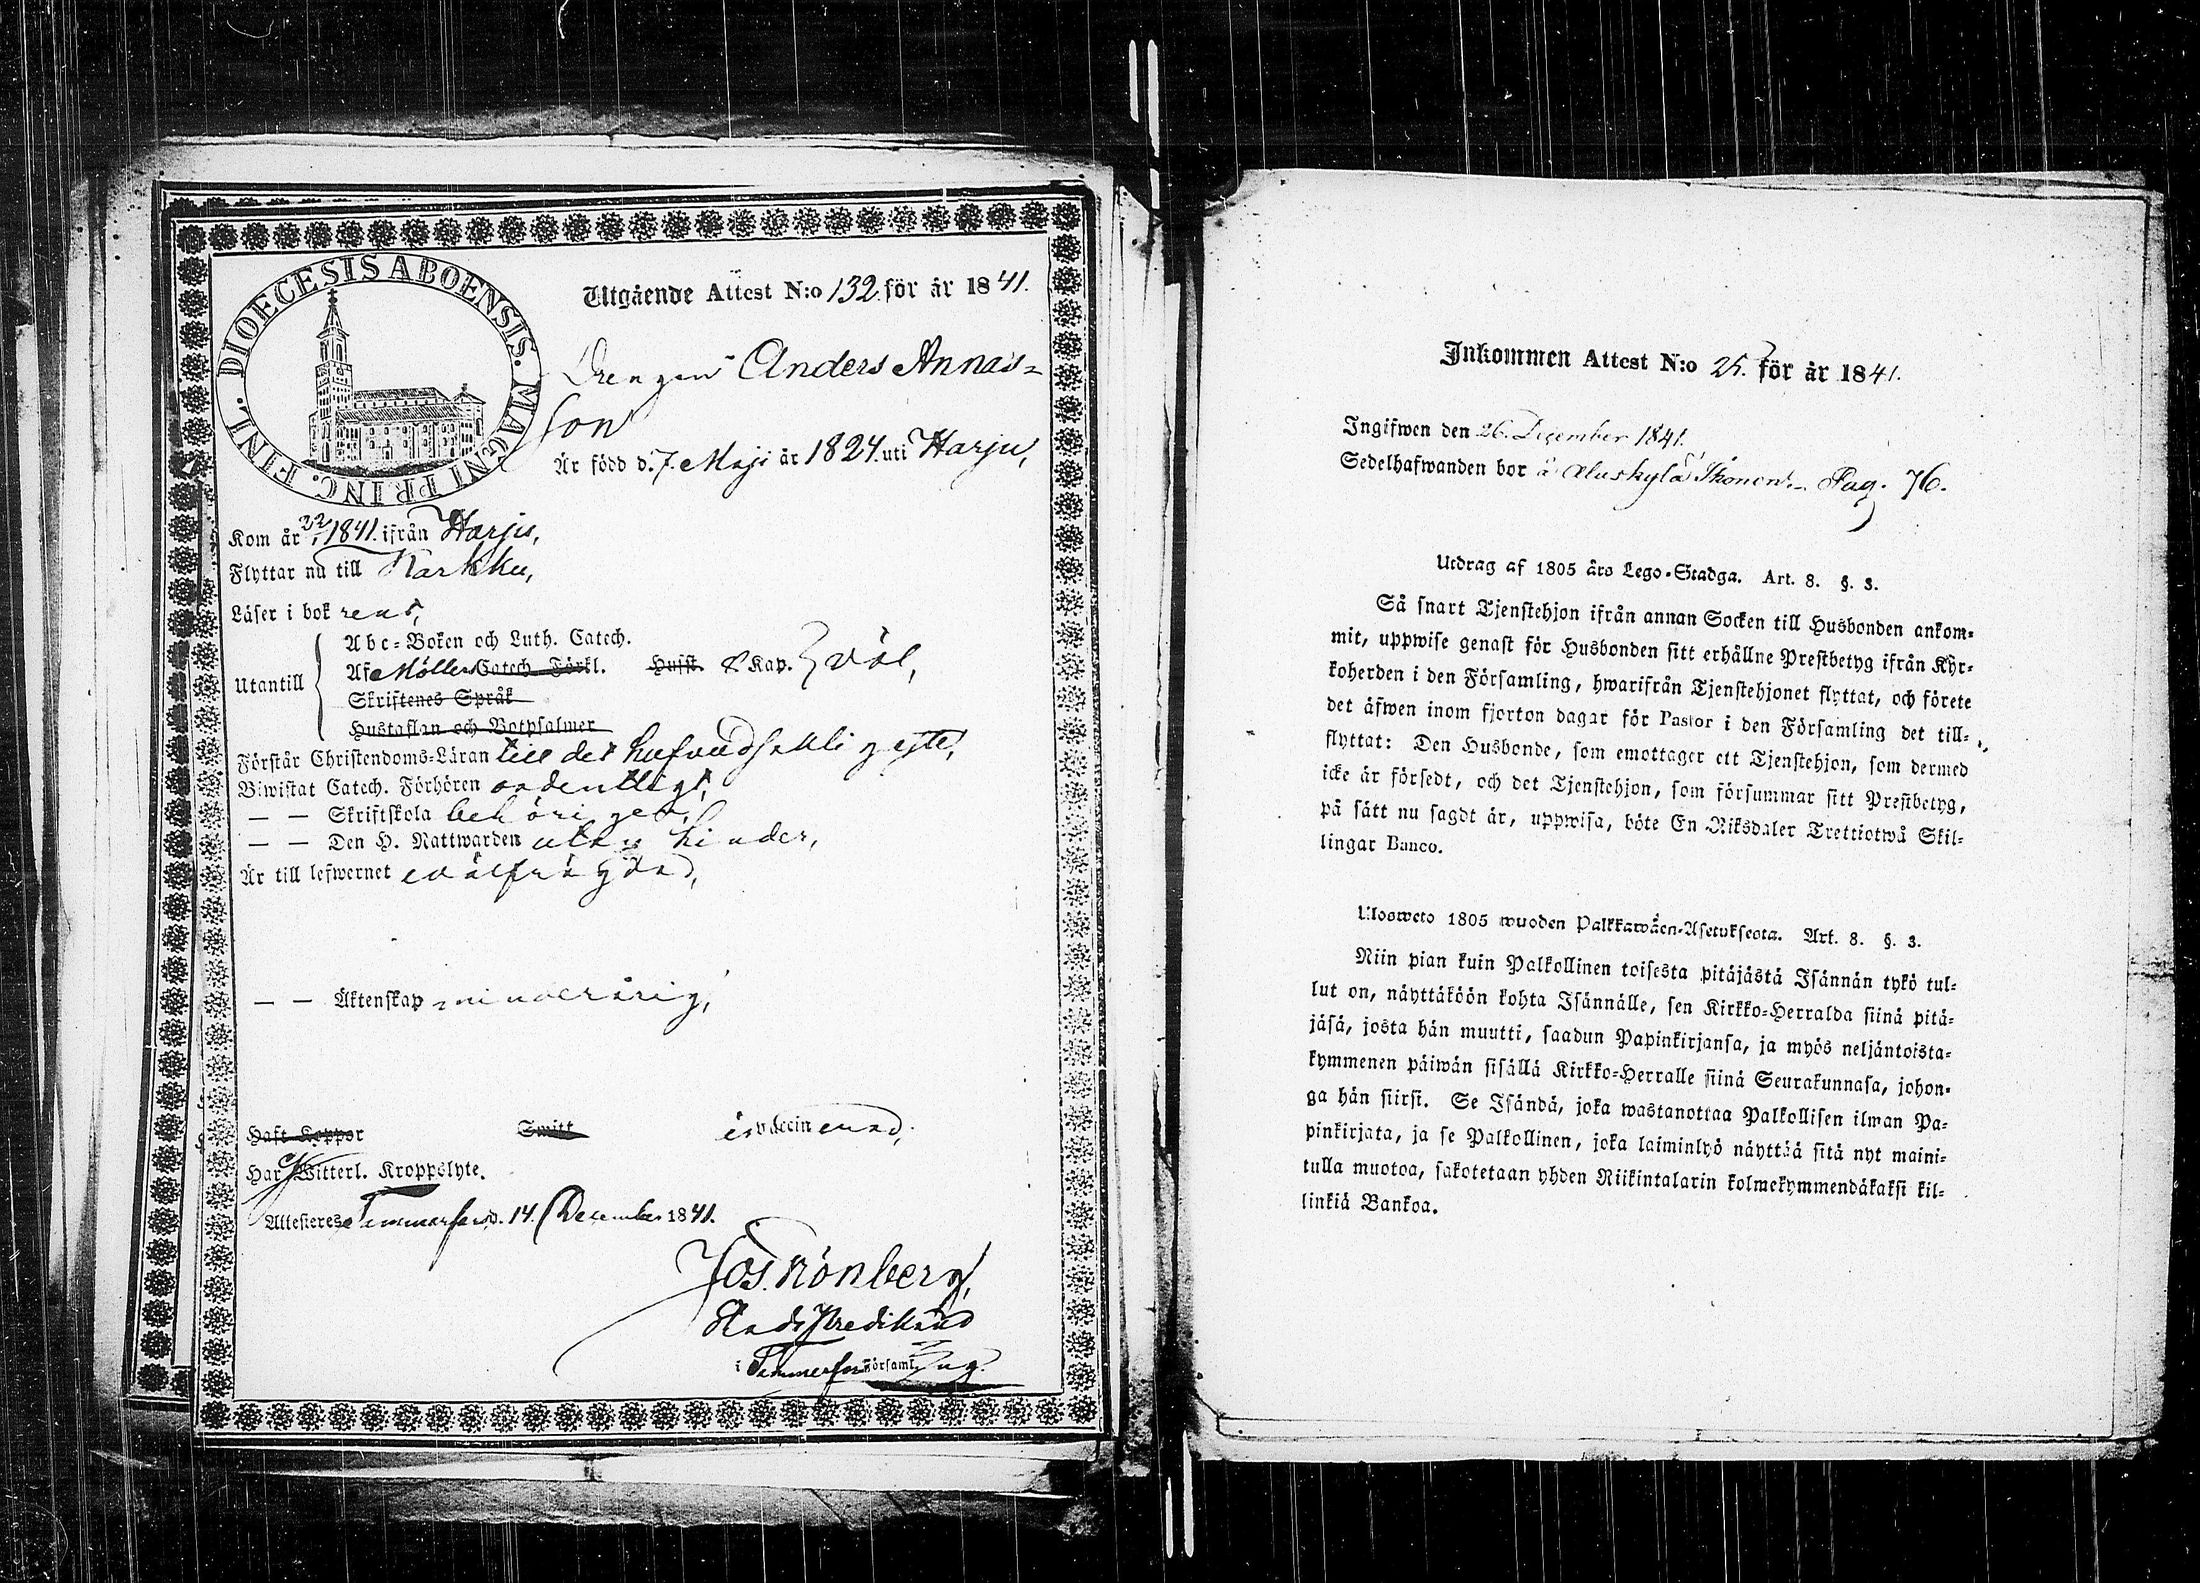 DIOECESIS ABOENSIS. MAGNI PRINC. FINL.
Utgående Attest N:o 132. för år 1841.
Drengen Anders Annas-
son
Är född d. 7. Maji år 1824. uti Harju,
Kom år 1841. ifrån Harju,
Flyttar nu till Karkku,
Läser i bok rent,
Utantill
Abc-Boken och Luth. Catech.
Af Möllers Catech. Förkl. Hufst. 8 Kap. väl,
Skriftenes Språk
Hustaflan och Botpsalmer
Förstår Christendoms-Läran till det hufvudsakligaste,
Biwistat Catech. Förhören ordentligt,
— — Skriftskola behörigen,
— — Den H. Nattwarden utan hinder,
Är till lefwernet wälfrägdad,
— — Äktenskap minderårig,
Haft Koppor Smitt är vaccinerad,
Har Witterl. Kroppslyte.
Attesteres Tammerfors, d. 14. December 1841.
Jos. Grönberg,
Stads Predikand
i Tammerfors Församling.
Inkommen Attest N:o 25. för år 1841.
Ingifwen den 26. December 1841.
Sedelhafwanden bor å Aluskylä Ikonen. Pag. 76.
Utdrag af 1805 års Lego-Stadga. Art. 8. §. 3.
Så snart Tjenstehjon ifrån annan Socken till Husbonden ankom-
mit, uppwise genast för Husbonden sitt erhållne Prestbetyg ifrån Kyr-
koherden i den Församling, hwarifrån Tjenstehjonet flyttat, och förete
det äfwen inom fjorton dagar för Pastor i den Församling det till-
flyttat: Den Husbonde, som emottager ett Tjenstehjon, som dermed
icke är försedt, och det Tjenstehjon, som försummar sitt Prestbetyg,
på sätt nu sagdt är, uppwisa, böte En Riksdaler Trettiotwå Skil-
lingar Banco.
Ulosweto 1805 wuoden Palkkawäen-Asetuksesta. Art. 8. §. 3.
Niin pian kuin Palkollinen toisesta pitäjästä Isännän tykö tul-
lut on, näyttäköön kohta Isännälle, sen Kirkko-Herralda siinä pitä-
jäsä, josta hän muutti, saadun Papinkirjansa, ja myös neljäntoista-
kymmenen päiwän sisällä Kirkko-Herralle siinä Seurakunnasa, johon-
ga hän siirsi. Se Isändä, joka wastanottaa Palkollisen ilman Pa-
pinkirjata, ja se Palkollinen, joka laiminlyö näyttää sitä nyt maini-
tulla muotoa, sakotetaan yhden Riikintalarin kolmekymmendäkaksi kil-
linkiä Bankoa.